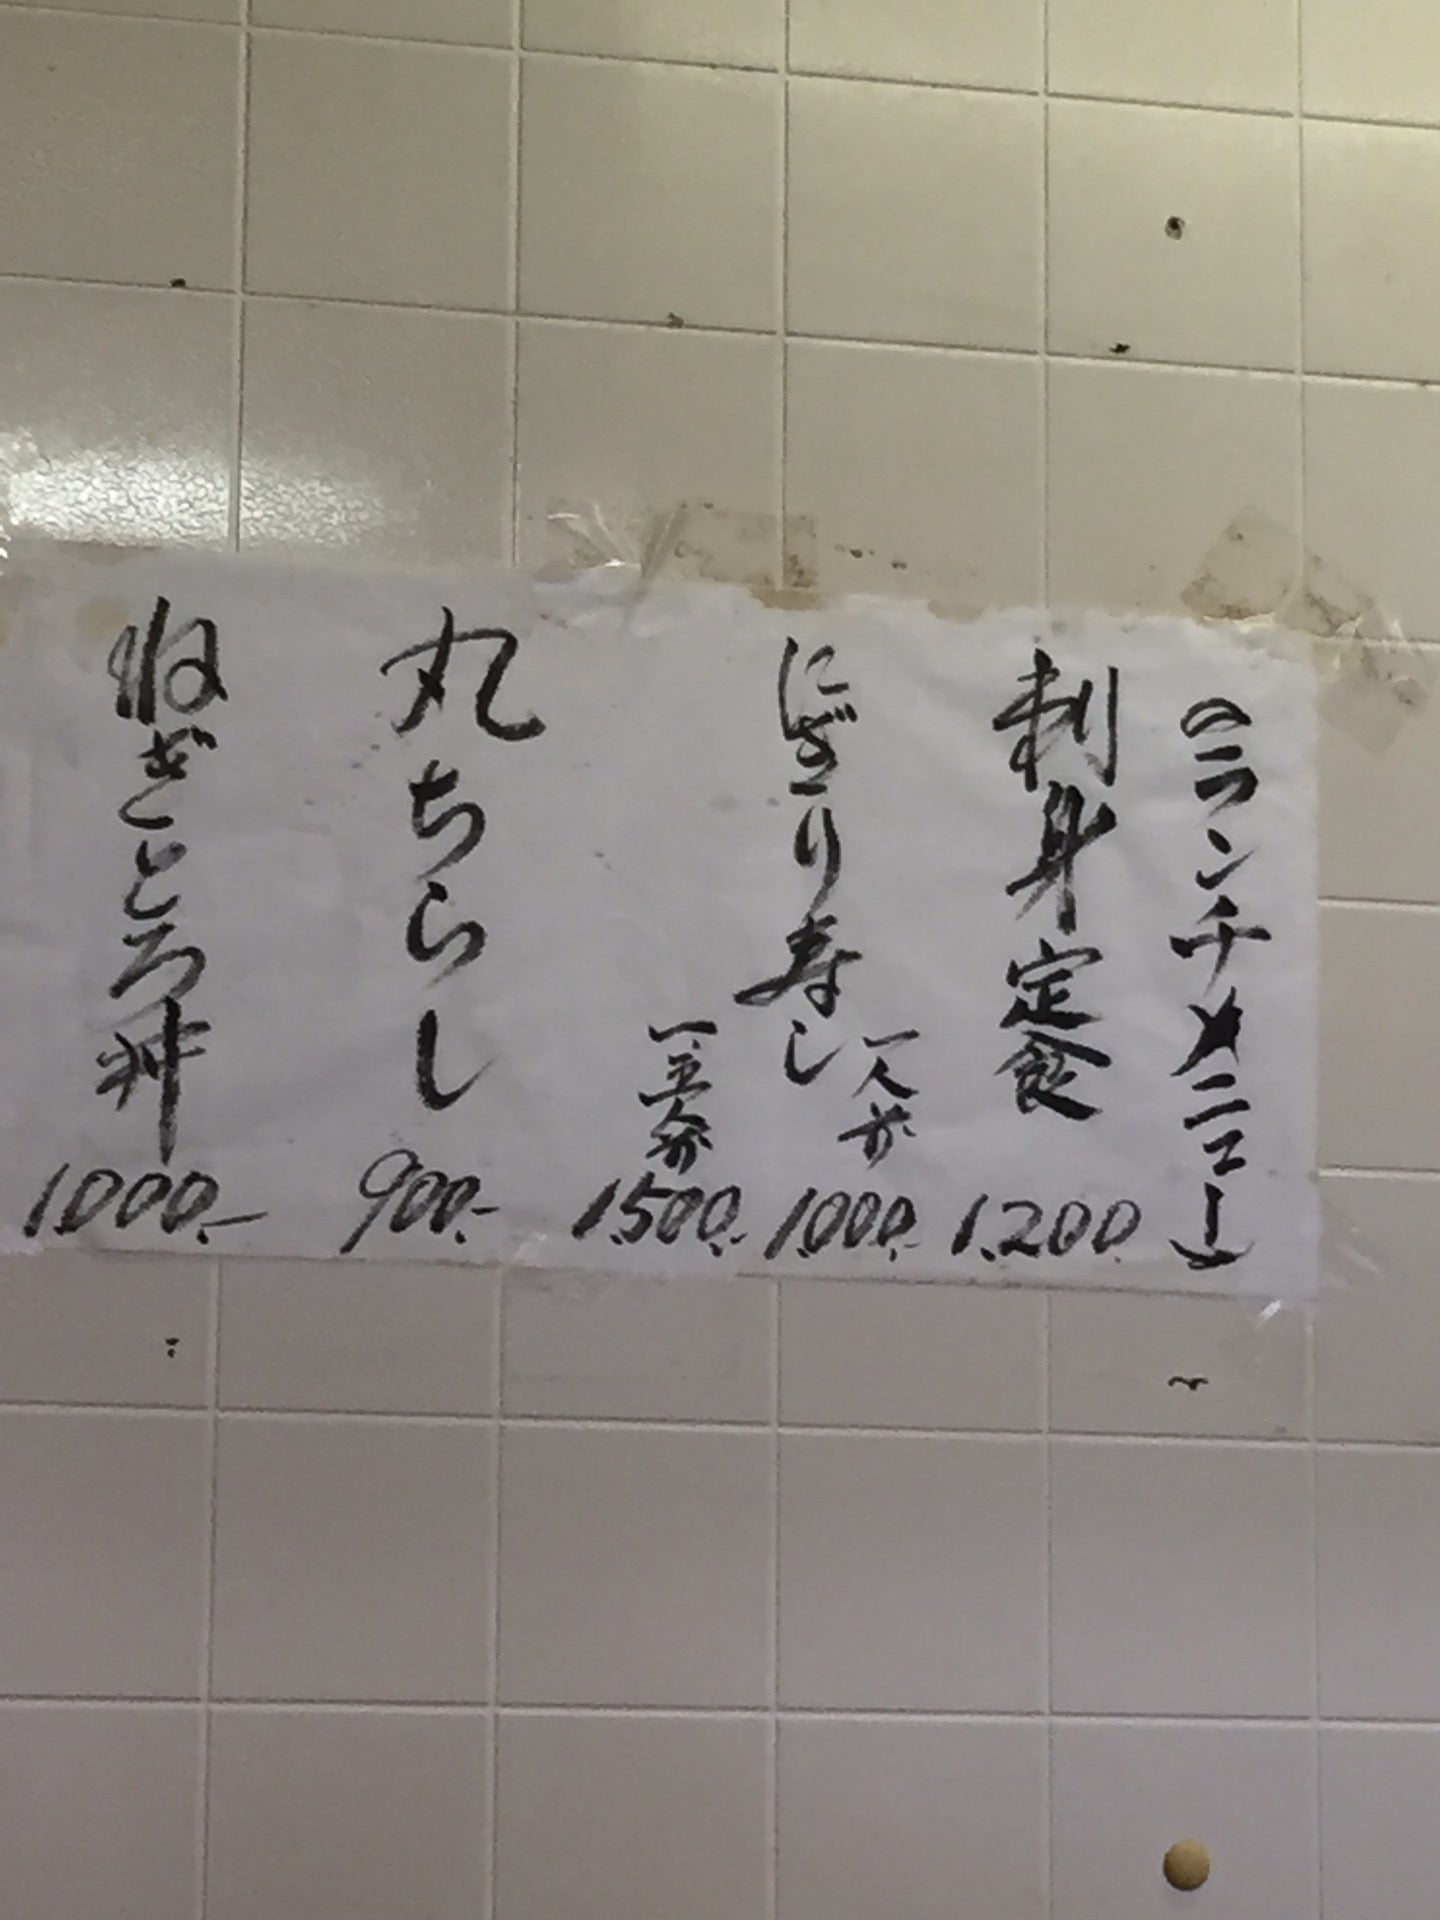 （ランチメニュー）
刺身定食 1.200
にぎり寿し
一人前 1.000.-
一.五人前 1.500.-
丸ちらし 900.-
ねぎとろ丼 1.000.-